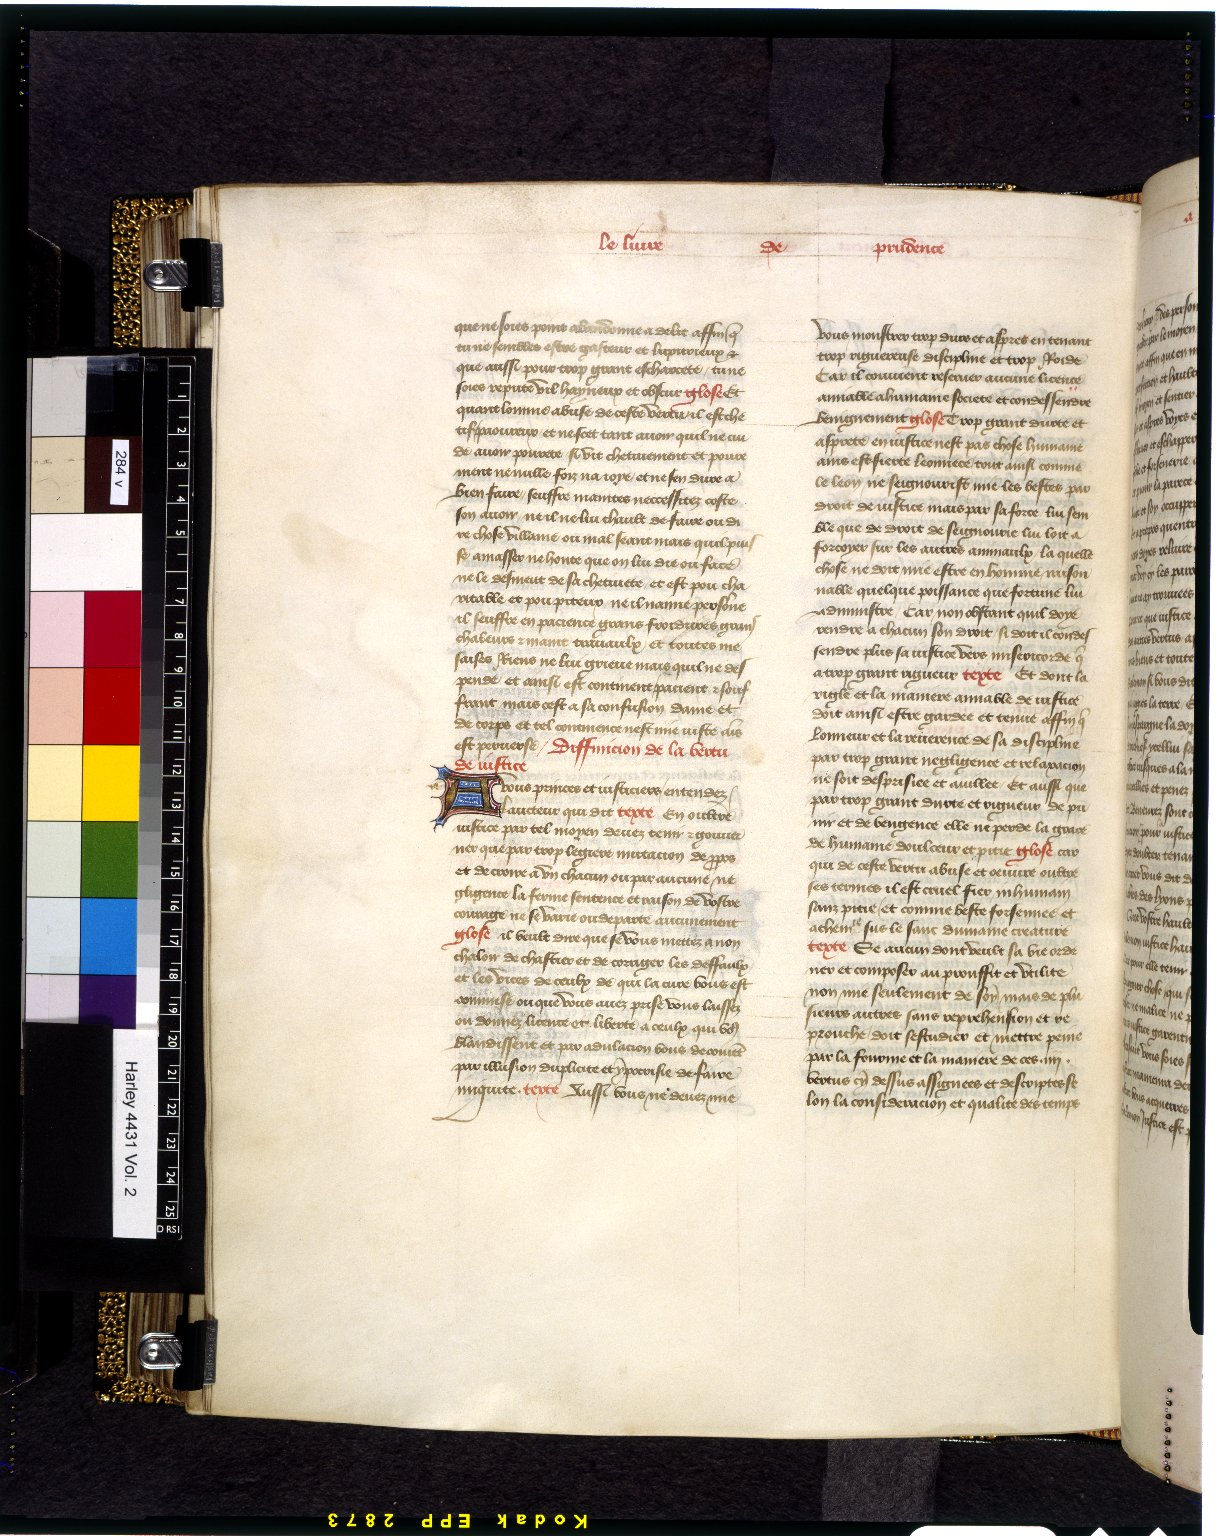 le liure de prudence
que ne soies point abandonne a delit affin q̄
tu ne sembles estre gasteur et luxurieux ⁊
que aussi pour trop grant escharcete / tu ne
soies repute vil hayneux et obscur glose Et
quant lomme abuse de ceste vertu il est che
tif paoureux et ne scet tant auoir quil ne cu
de auoir pourete si vit chetiuement et poure
ment ne nulle foiz na ioye / et ne sen dure a
bien faire / seuffre maintes neccessitez coste
son auoir ne il ne lui chault de faire ou di
re chose villaine ou mal seant mais quil puis
se amasser ne honte que on lui die ou face
ne le desmeut de sa chetiuete et est pou cha
ritable et pou piteux ne il naime persōne
il seuffre en pacience grans froidures grans
chaleurs ⁊ maint trauaulx et toutes me
saises Riens ne lui grieue mais quil ne des
pende et ainsi est continent pacient ⁊ souf
frant mais cest a sa confusion dame et
de corps et tel continence nest mie iuste ais
est peruerse / Diffinicion de la vertu
de iustice
A vous princes et iusticiers entendez
lauteur qui dit texte En oultre
iustice par tel moyen deuez tenir ⁊ gouuer
ner que par trop legiere mutacion de ppos
et de croire a vn chacun ou par aucune ne
gligence la ferme sentence et raison de vostre
courage ne se varie ou departe aucunement
glose il veult dire que se vous mettez a non
chaloir de chastier et de corriger les deffaulx
et les vices de ceulx de qui la cure vous est
commise ou que vous auez prise vous laissez
ou donnez licence et liberte a ceulx qui vo9
blandissent et par adulacion vous decoiuēt
par illusion duplicite et ypocrisie de faire
iniquite . texte Aussi vous ne deuez mie
vous monstrer trop durs et aspres en tenant
trop rigueureuse discipline et trop Roide
Car il conuient reseruer aucune licence
amiable a humaine societe et condessendre
benignement glose Trop grant durte et
asprete en iustice nest pas chose humaine
ains est fierte leonnece tout ainsi comme
le leon ne seignourist mie les bestes par
droit de iustice mais par sa force lui sem
ble que de droit de seignourie lui loit a
forcoyer sur les autres animaulx la quelle
chose ne doit mie estre en homme raison
nable quelque poissance que fortune lui
administre Car non obstant quil doye
rendre a chacun son droit si doit il condes
sendre plus sa iustice vers misericorde q̄
a trop grant rigueur texte Et dont la
rigle et la maniere amiable de iustice
doit ainsi estre gardee et tenue affin q̄
lonneur et la reuerence de sa discipline
par trop grant negligence et relaxacion
ne soit desprisiee et auillee Et aussi que
par trop grant durte et rigueur de pu
nir et de vengence elle ne perde la grace
de humaine doulceur et pitie glose car
qui de ceste vertu abuse et oeuure oultre
ses termes il est cruel fier inhumain
sanz pitie et comme beste forsennee et
achem͛te sus le sanc dumaine creature
texte Se aucun dont veult sa vie orde
ner et composer au prouffit et vtilite
non mie seulement de soy mais de plu
sieurs autres sans reprehension et re
prouche doit sestudier et mettre peine
par la fourme et la maniere de ces .iiii .
vertus cy dessus assignees et descriptes se
lon la consideracion et qualite des temps
284 v
Harley 4431 Vol. 2
1
2
3
4
5
7
8
9
10
11
12
13
14
15
16
17
18
19
20
21
22
23
24
25
Kodak EPP 2873